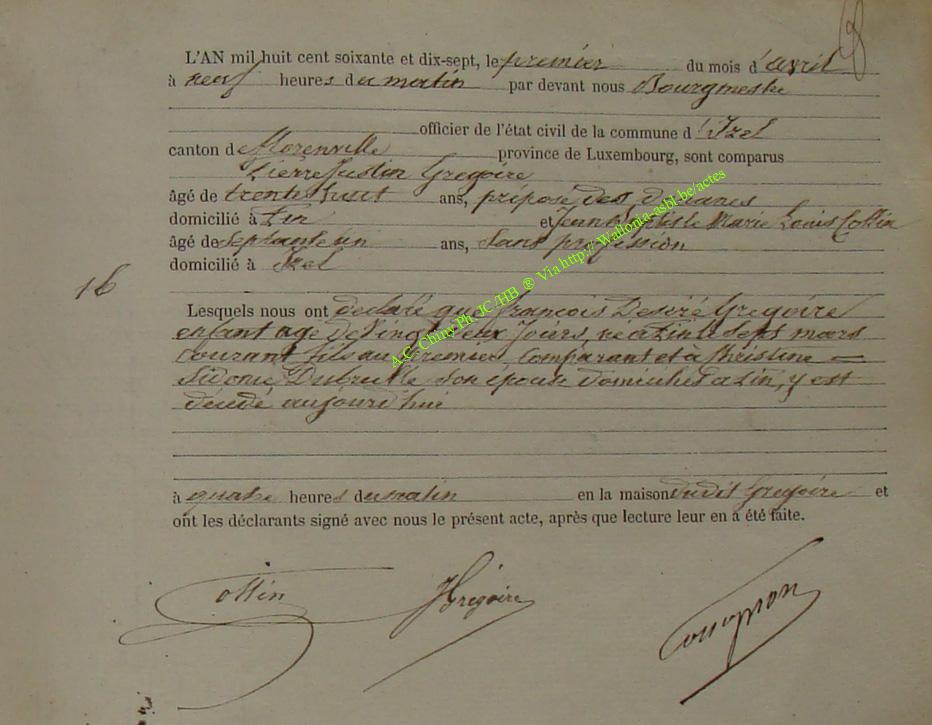 L'AN mil huit cent soixante et dix-sept, le premier du mois d'avril
à neuf heures du matin par devant nous Bourgmestre
officier de l'état civil de la commune d'Izel
canton de Florenville province de Luxembourg, sont comparus
Pierre Justin Gregoire
âgé de trente huit ans, préposé des douanes
domicilié à Pin et Jean Baptiste Marie Louis Collin
âgé de septante un ans, Sans profession
domicilié à Izel
16
Lesquels nous ont declaré que François Desiré Gregoire
enfant agé de vingt deux jours, né à Pin le sept mars
courant fils du premier Comparant et à Christine
Sidonie Dubruille son épouse domiciliés à Pin, y est
décédé aujourd'hui
à quatre heures du matin en la maison dudit Gregoire et
ont les déclarants signé avec nous le présent acte, après que lecture leur en a été faite.
Collin JGrégoire
A.C. Chiny Ph JC /HB @ Via http:// Wallonia-asbl.be/actes